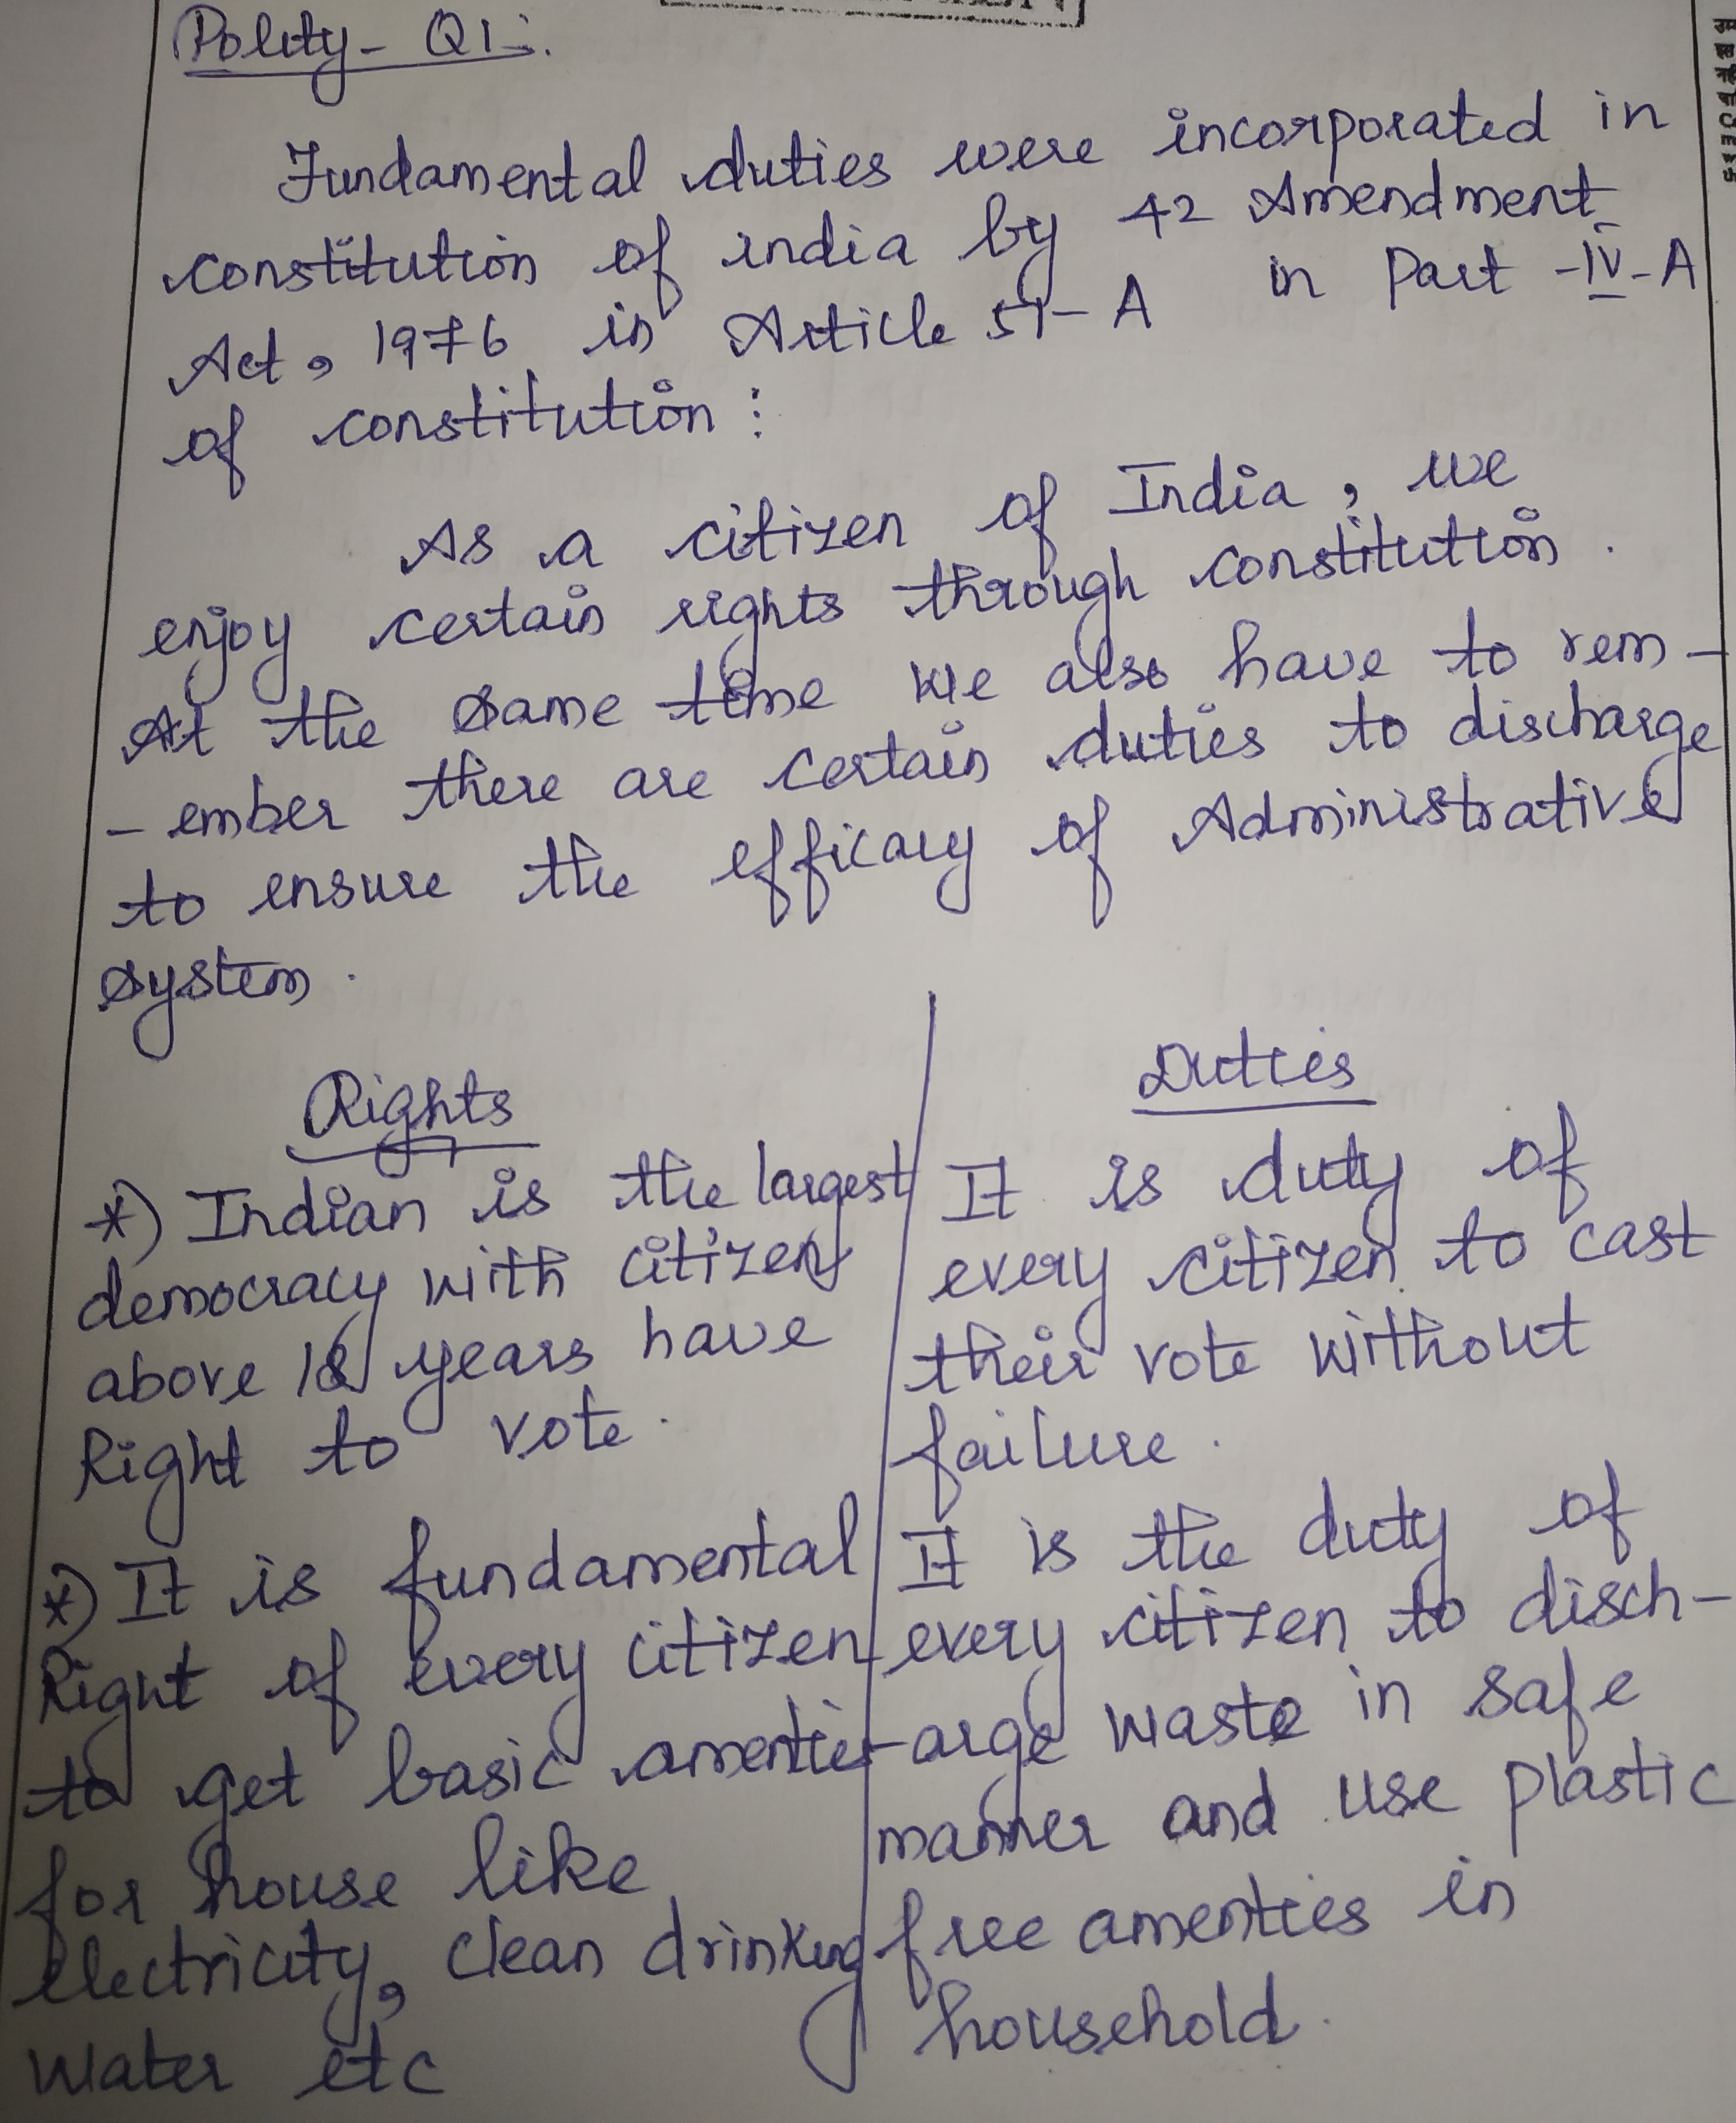 Polity - Q1 :-
Fundamental duties were incorporated in
constitution of india by 42 Amendment
Act, 1976 in Article 51-A in Part -IV-A
of constitution :
As a citizen of India, we
enjoy certain rights through constitution.
At the same time we also have to rem-
-ember there are certain duties to discharge
to ensure the efficacy of Administrative
system.
Rights
*) Indian is the largest
democracy with citizens
above 18 years have
Right to vote.
*) It is fundamental
Right of every citizen
to get basic amenties
for house like
electricity, clean drinking
water etc
Duties
It is duty of
every citizen to cast
their vote without
failure.
It is the duty of
every citizen to disch-
-arge waste in safe
manner and use plastic
free amenties in
household.